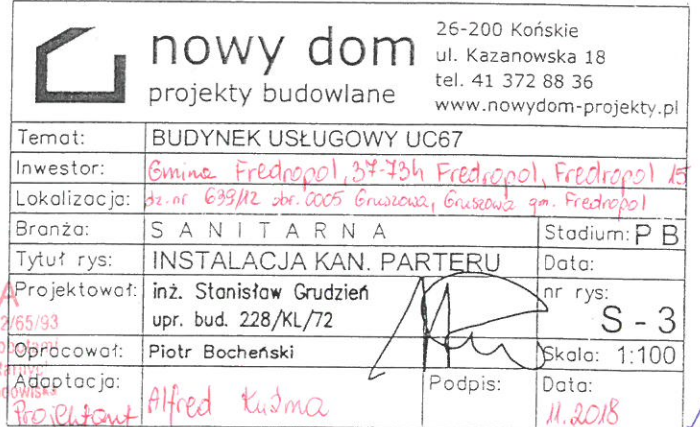 nowy dom
projekty budowlane
26-200 Końskie
ul. Kazanowska 18
tel. 41 372 88 36
www.nowydom-projekty.pl
Temat: BUDYNEK USŁUGOWY UC67
Inwestor: Gmina Fredropol, 37-734 Fredropol, Fredropol 15
Lokalizacja: dz. nr 639/12 obr. 0005 Gruszowa, Gruszowa gm. Fredropol
Branża: SANITARNA Stadium: PB
Tytuł rys: INSTALACJA KAN. PARTERU Data:
Projektował: inż. Stanisław Grudzień nr rys:
2/65/93 upr. bud. 228/KL/72 S - 3
Opracował: Piotr Bocheński Skala: 1:100
Adaptacja: Podpis: Data:
Projektant Alfred Kuźma 11.2018